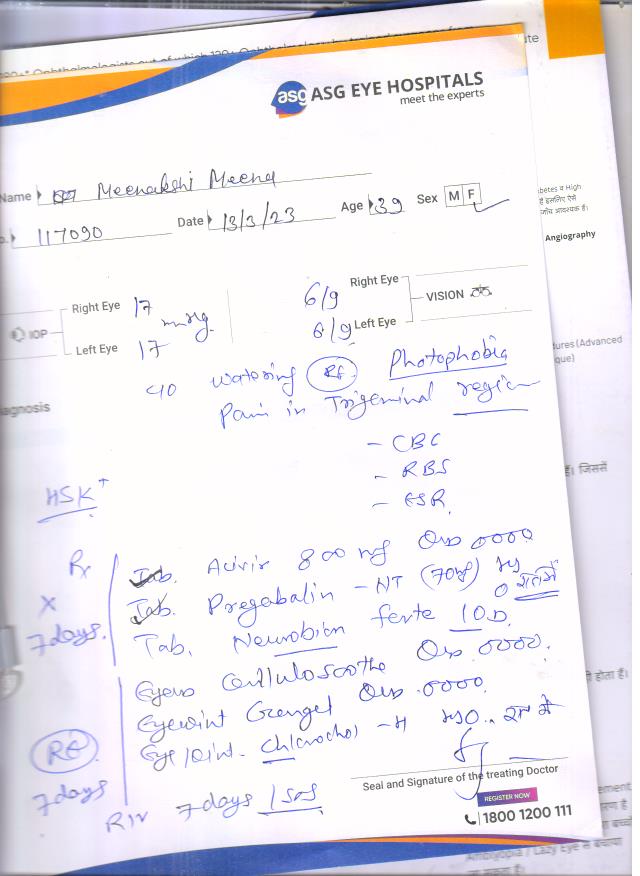 asg ASG EYE HOSPITALS
meet the experts
Name Meenakshi Meena
117090 Date 13/3/23 Age 39 Sex M F
Right Eye 17 mmHg.
IOP
Left Eye 17
6/9 Right Eye
VISION
6/9 Left Eye
c/o watering RE Photophobia
Pain in Trigeminal region
agnosis
- CBC
- RBS
- ESR
HSK
Rx
x
7 days.
Tab. Acivir 800 mg 0000
Tab. Pregabalin - NT (70mg) HS
0 रात में
Tab. Neurobion forte 1 OD
Eye 0000.
Eyeoint Gangel 0000.
Eye/oint. Chlorochol - H HSO.. रात में
RE
7 days
R/w 7 days / SOS
Seal and Signature of the treating Doctor
REGISTER NOW
1800 1200 111
betes व High
Angiography
tures (Advanced
que)
हैं। जिसमें
ी होता हैं।
Amblyopia / Lazy Eye से बचाया